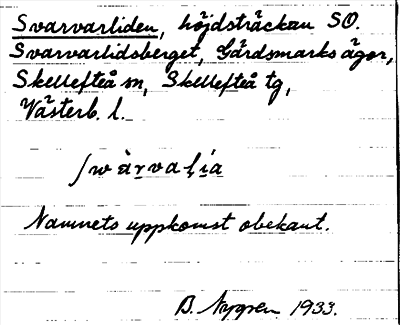 Svarvarliden, höjdsträckan SO.
Svarvarlidsberget, Gärdsmarks ägor,
Skellefteå sn, Skellefteå tg,
Västerb. l.
Namnets uppkomst obekant.
B. Nygren 1933.